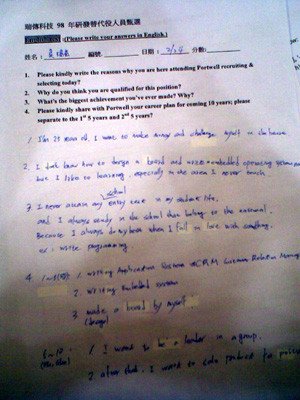 瑞傳科技 98 年研發替代役人員甄選
(Please write your answers in English.)
姓名: 編號: 日期: 2/24 分數:
1. Please kindly write the reasons why you are here attending Portwell recruiting & selecting today?
2. Why do you think you are qualified for this position?
3. What's the biggest achievement you've ever made? Why?
4. Please kindly share with Portwell your career plan for coming 10 years; please
separate to the 1st 5 years and 2nd 5 years?
1. I'm 25 years old, I want to make money and challenge myself in the
2. I don't know how to design a board and embedded operating system
but I like to learning, especially in the area I never touch.
school
3. I never attain any entry test in my student life,
and I always study in the school that belong to the national.
Because I always do my best when I fall in love with something,
ex: write programming.
4. 1~5(年): 1. writing Application System CRM
2. Writing Embedded system
3. made a board by myself.
(design)
6~10 1. I want to be a leader in a group.
2 after that, I want to sale product